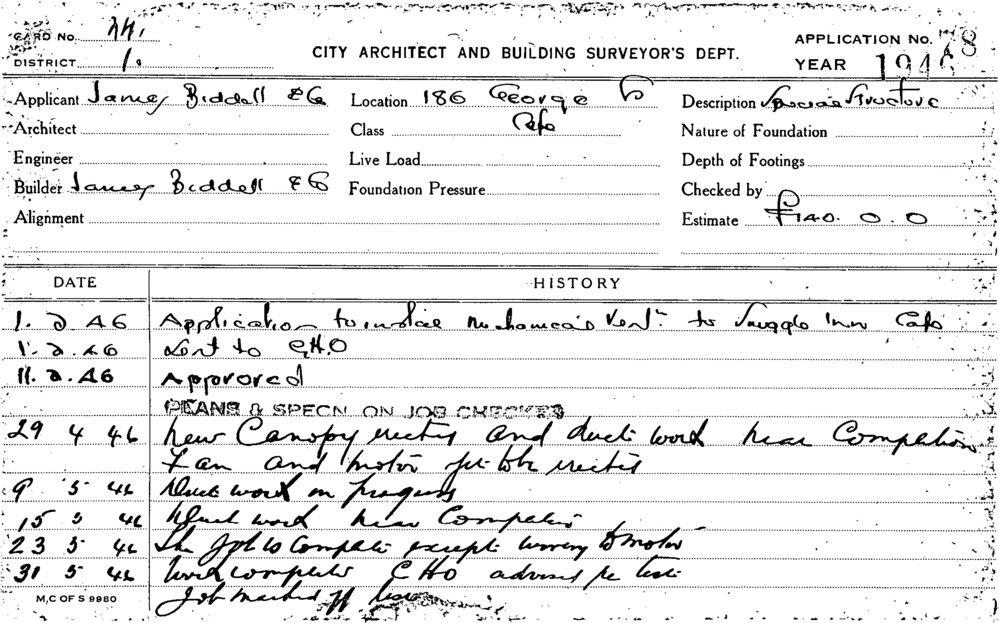 CARD No. 24.
CITY ARCHITECT AND BUILDING SURVEYOR'S DEPT.
APPLICATION No. 78
DISTRICT 1.
YEAR 1946
Applicant James Biddell & Co Location 186 George St Description Special Structure
Architect Class Cafe Nature of Foundation
Engineer Live Load Depth of Footings
Builder James Biddell & Co Foundation Pressure Checked by
Alignment Estimate £140. 0. 0
DATE HISTORY
1. 2. 46 Application to instal mechanical Ventn to Snuggle Inn Cafe
1. 2. 46 Sent to C.H.O
11. 2. 46 Approved
PLANS & SPECN. ON JOB CHECKED
29 4 46 New Canopy erected and duct work near Completion
Fan and motor yet to be erected
9 5 46 Duct work in progress
15 5 46 Duct work near Completion
23 5 46 The Job is Complete except wiring to motor
31 5 46 Work complete CHO advised re test
Job marked off
M,C OF S 9980